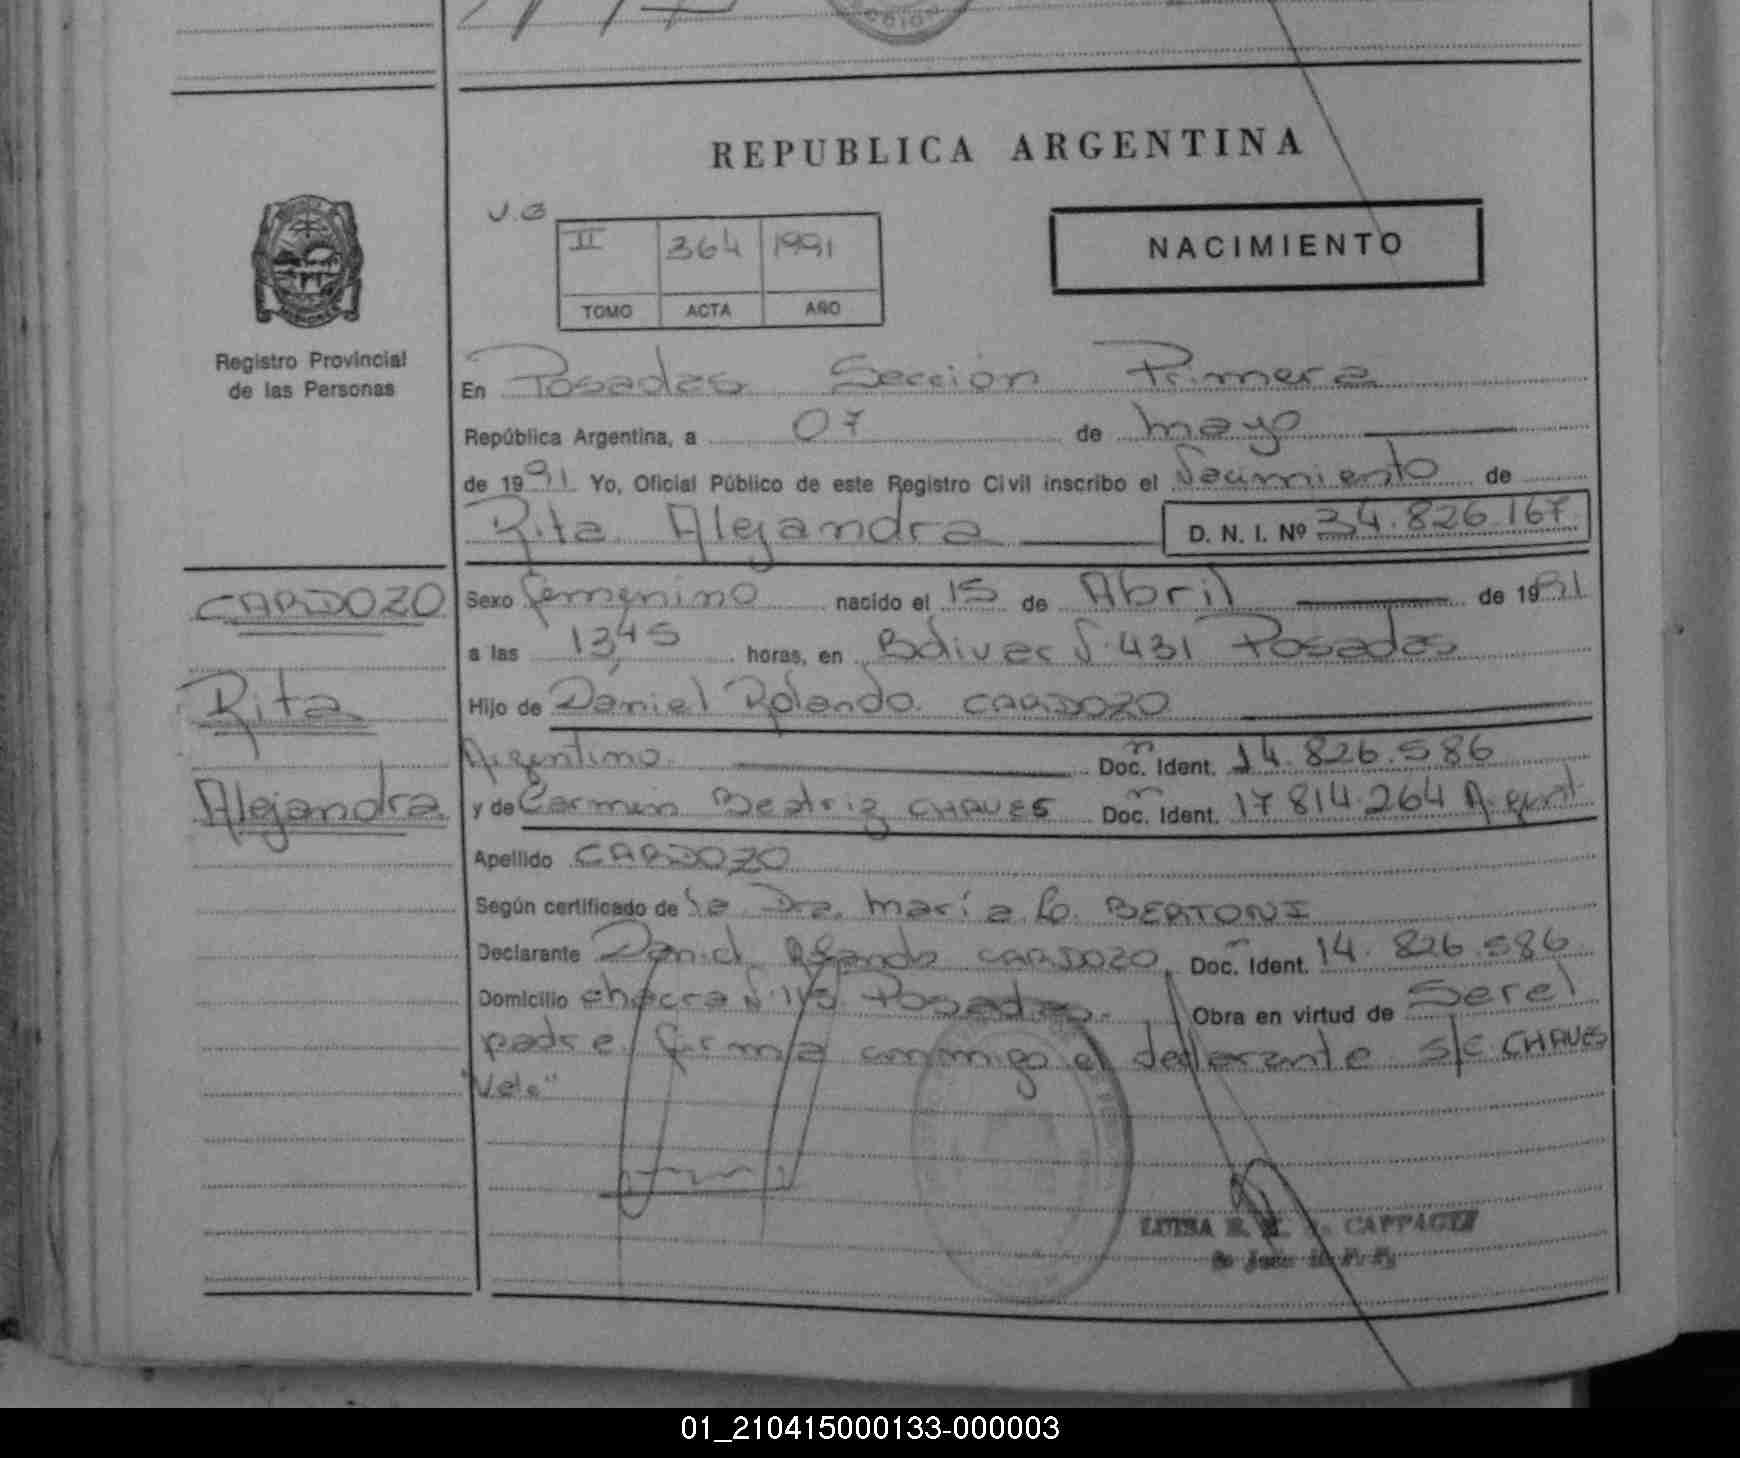 REPUBLICA ARGENTINA
U.G
II 364 1991
TOMO ACTA AÑO
NACIMIENTO
Registro Provincial
de las Personas
En Posadas Sección Primera
República Argentina, a 07 de mayo
de 1991 Yo, Oficial Público de este Registro Civil inscribo el Nacimiento de
Rita Alejandra D. N. I. Nº 34.826.167
CARDOZO
Rita
Alejandra
Sexo femenino nacido el 15 de Abril de 1991
a las 13,45 horas, en Bolivar N. 431 Posadas
Hijo de Daniel Rolando CARDOZO
Argentino Doc. Ident. 14.826.586
y de Carmen Beatriz CHAVES Doc. Ident. 17 814.264 Argent.
Apellido CARDOZO
Según certificado de la Dra. María BERTONI
Declarante Daniel Rolando CARDOZO Doc. Ident. 14.826.586
Domicilio chacra Posadas. Obra en virtud de Ser el
padre firma conmigo el declarante S/C CHAVES
"Vale"
LUISA CAPPAGLI
01_210415000133-000003